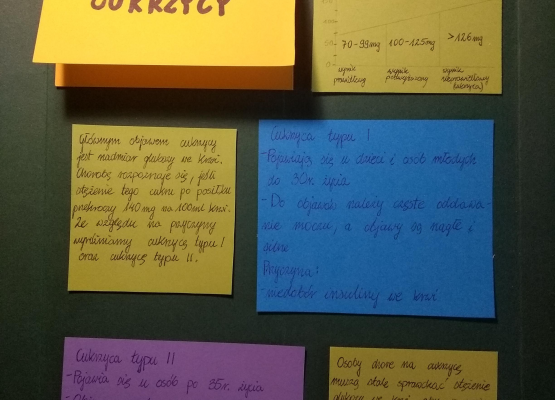 CUKRZYCY
70-99mg
100-125mg
>126mg
wynik
prawidłowy
wynik
nieprawidłowy
Głównym objawem cukrzycy
jest nadmiar glukozy we krwi.
Chorobę rozpoznaje się, jeśli
stężenie tego cukru po posiłku
przekroczy 140 mg na 100ml krwi.
Ze względu na przyczyny
wyróżniamy cukrzycę typu I
oraz cukrzycę typu II.
Cukrzyca typu I
- Pojawiają się u dzieci i osób młodych
do 30r. życia
- Do objawów należy częste oddawa-
nie moczu, a objawy są nagłe i
Przyczyna:
- niedobór insuliny we krwi
Cukrzyca typu II
- Pojawia się u osób po 35r. życia
Osoby chore na cukrzycę
muszą stale sprawdzać stężenie
glukozy we krwi